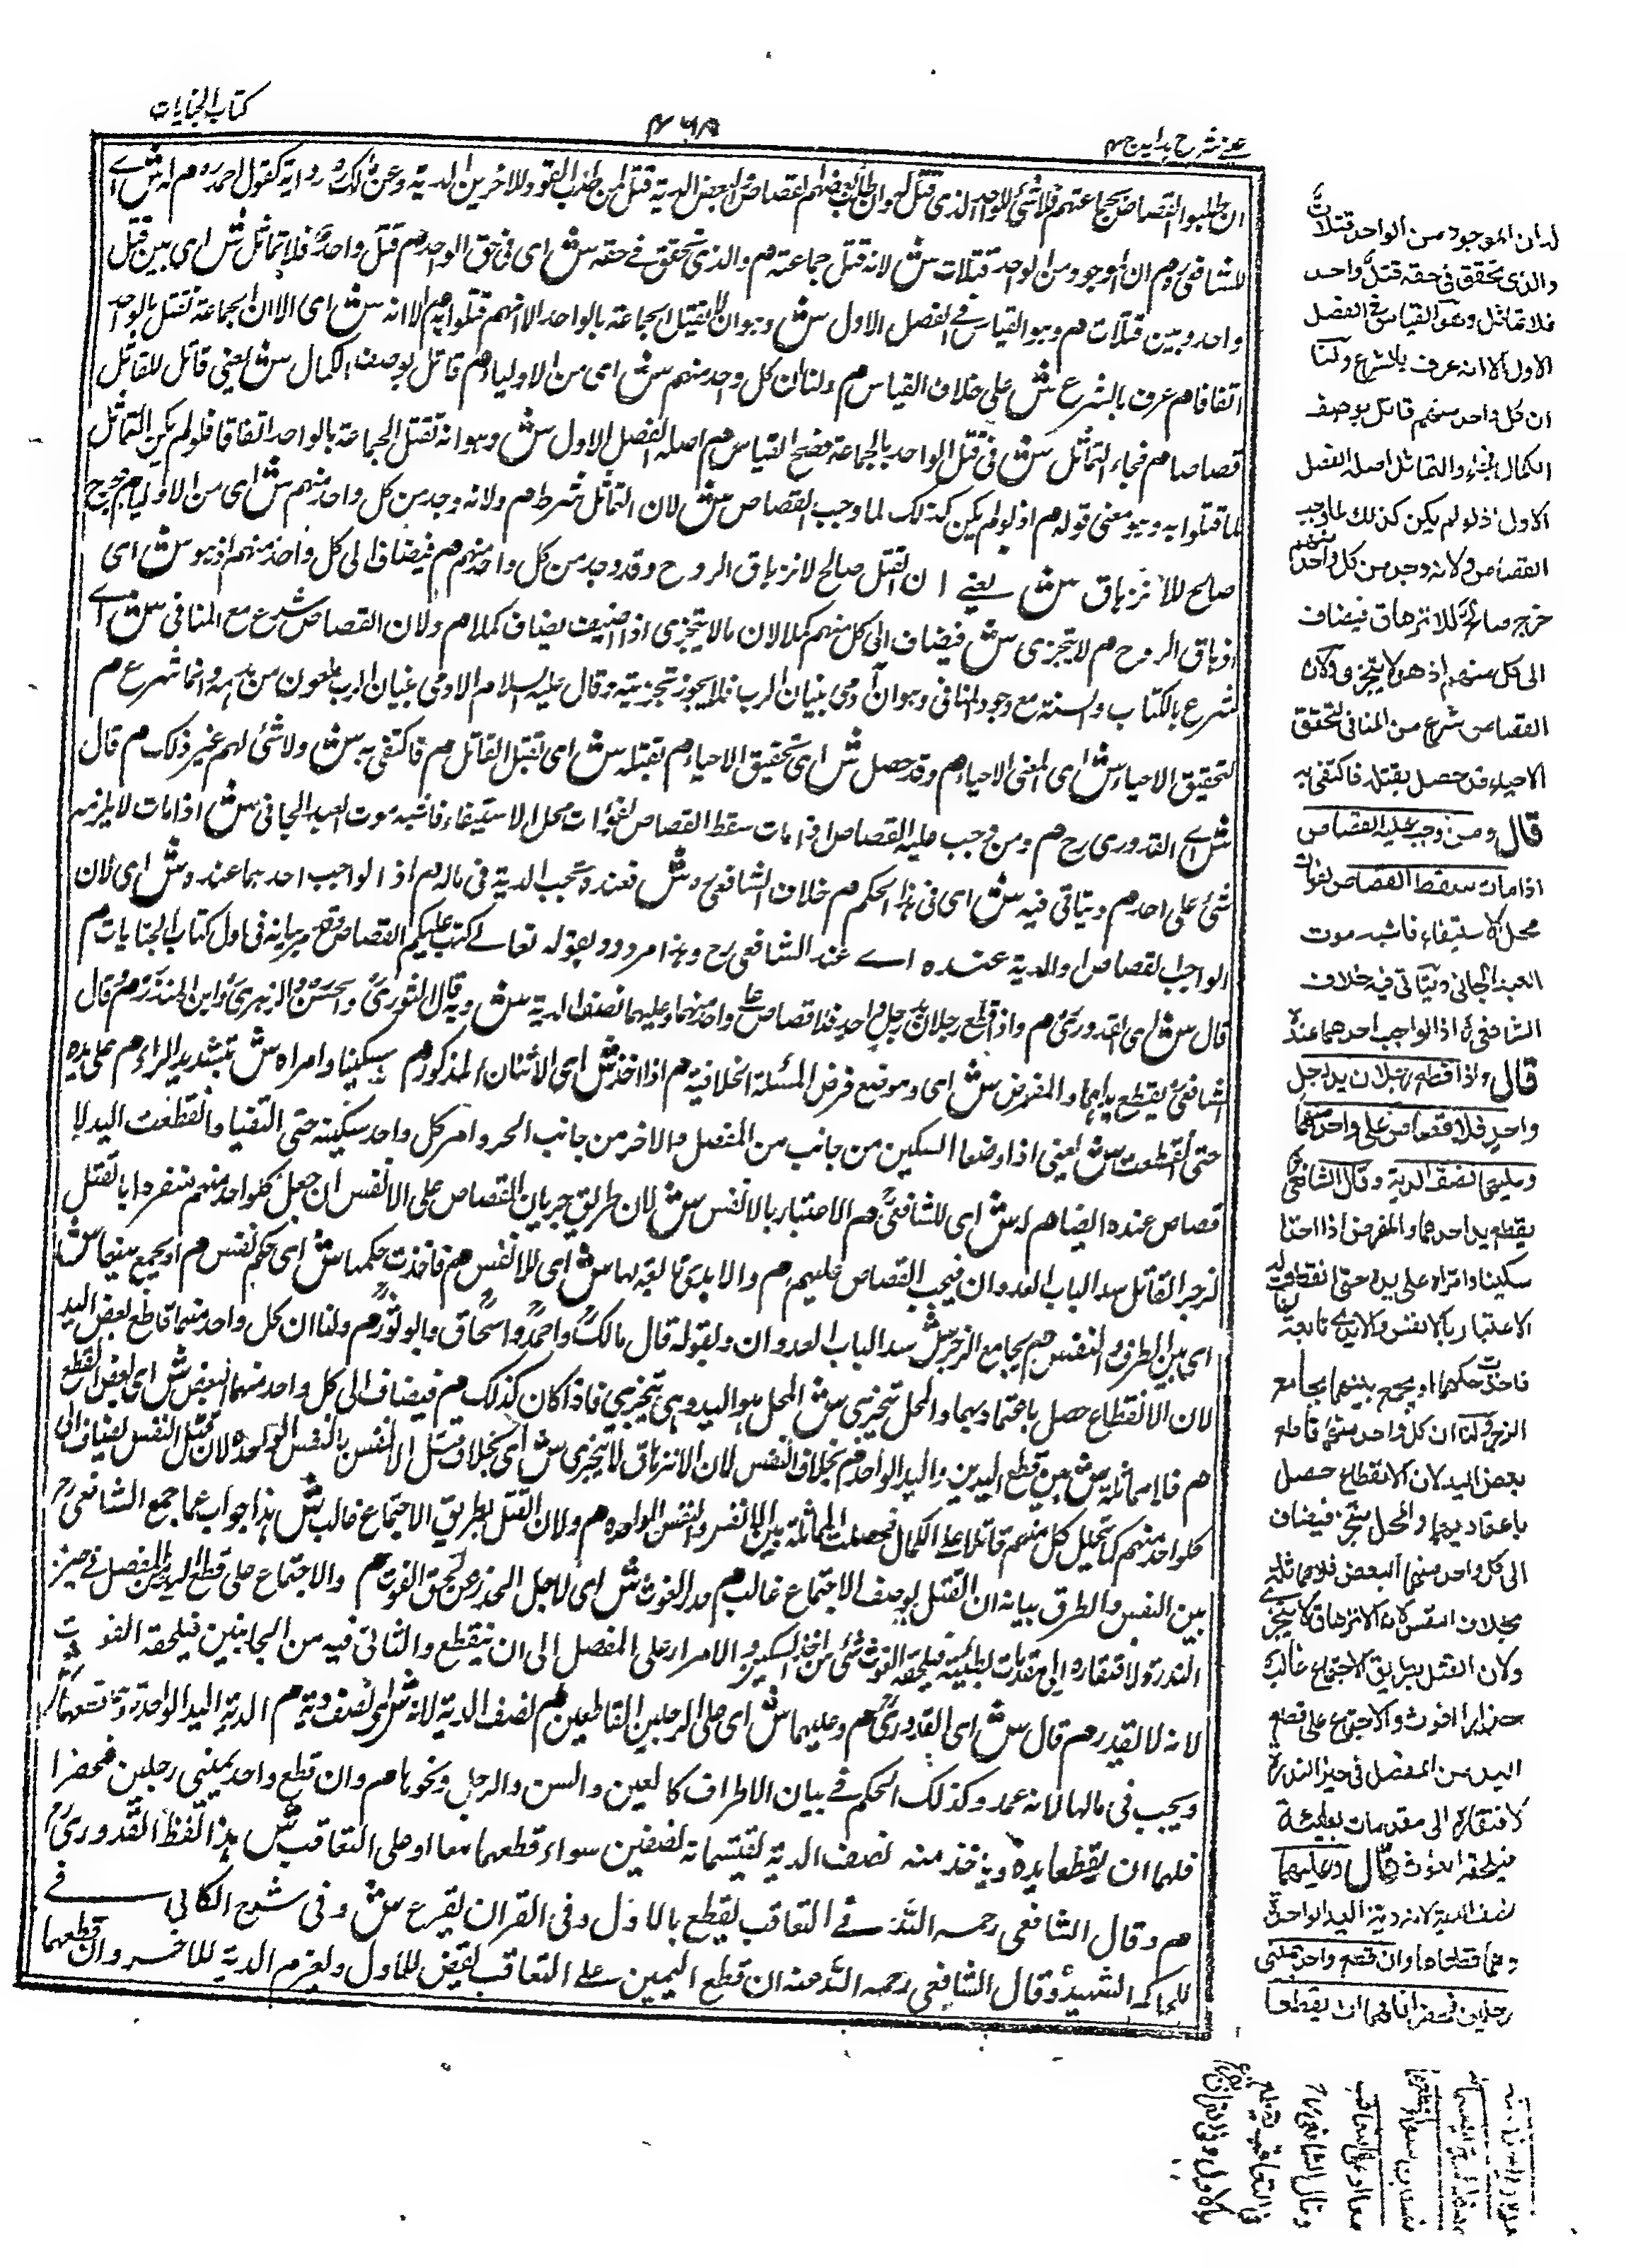 كتاب الجنايات
عينى شرح هدايه ج ٤
ان طلبوا القصاص بجماعتهم فلا شئ للواحد الذى قتل له وان طلب بعضهم القصاص والبعض الدية قتل لمن طلب القود وللاخرين الدية وعن مالك رواية كقول احمد م له ش اے
للشافعى م ان الموجود من الواحد قتلات ش لانه قتل جماعته م والذى تحقق فے حقه ش اى فى حق الواحد م قتل واحد فلا تماثل ش اى بين قتل
واحد وبين قتلات م وهو القياس فے الفصل الاول ش وهو ان لا يقتل الجماعة بالواحد الا انهم قتلوا به م الا انه ش اى الا ان الجماعة تقتل بالواحد
اتفاقا م عرف بالشرع ش على خلاف القياس م ولنا ان كل واحد منهم ش اى من الاولياء م قاتل بوصف الكمال ش يعنى قاتل للقاتل
قصاصا م فجاء التماثل ش فى قتل الواحد بالجماعة فصح القياس م اصله الفصل الاول ش وهو انه تقتل الجماعة بالواحد اتفاقا فلو لم يكن التماثل
لما قتلوا به وهو معنى قوله م اذ لو لم يكن كذلك لما وجب القصاص ش لان التماثل شرط م ولانه وجد من كل واحد منهم ش اى من الاولياء م جرح
صالح للانزهاق ش يعنے ان القتل صالح لانزهاق الروح وقد وجد من كل واحد منهم م فيضاف الى كل واحد منهم اذ هو ش اى
انزهاق الروح م لا يتجزى ش فيضاف الى كل منهم كملا لان ما لا يتجزى اذا اضيف يضاف كملا م ولان القصاص شرع مع المنافى ش اے
شرع بالكتاب والسنة مع وجود المنافى وهو ان آدمى بنيان الرب فلا يجوز تخريبه وقال عليه السلام الادمى بنيان الرب ملعون من هدمه وانما شرع م
لتحقيق الاحياء ش اى لمعنى الاحياء م وقد حصل ش اى تحقيق الاحياء م بقتله ش اى بقتل القاتل م فاكتفى به ش ولا شئ لهم غير ذلك م قال
ش اے القدورى رح م ومن وجب عليه القصاص اذا مات سقط القصاص لفوات محل الاستيفاء فاشبه موت العبد الجانى ش اذا مات لا يلزمه
شئ على احد م ويتاتى فيه ش اى فى هذا الحكم م خلاف الشافعى ش فعنده تجب الدية فى ماله م اذ الواجب احدهما عنده ش اى لان
الواجب القصاص او الدية عنده اے عند الشافعى رح وهذا مردود بقوله تعالے كتب عليكم القصاص وقد مر بيانه فى اول كتاب الجنايات م
قال ش اى القدورى م واذا قطع رجلان يد رجل واحد فلا قصاص على واحد منهما وعليهما نصف الدية ش وبه قال الثورى والحسن والزهرى وابن المنذر م وقال
الشافعى يقطع يداهما والمفروض ش اى وموضع فرض المسئلة الخلافية م اذا اخذ ش اى الاثنان المذكور م سكينا وامراه ش بتشديد الراء م على يده
حتى انقطعت ش يعنى اذا وضعا السكين من جانب من المفصل والاخر من جانب اخر وامر كل واحد سكينه حتى التقيا وانقطعت اليد لا
قصاص عنده ايضا م له ش اى للشافعى م الاعتبار بالانفس ش لان طريق جريان القصاص على الانفس ان جعل كلواحد منهم منفردا بالقتل
لزجر القاتل سد الباب العدوان فيجب القصاص عليهم م والايدى تابعة لها ش اى للانفس م فاخذت حكمها ش اى حكم النفس م او يجمع بينهما ش
اى بين الطرف والنفس م بجامع الزجر ش سد الباب العدوان وبقوله قال مالك واحمد واسحاق وابو ثور م ولنا ان كل واحد منهما قاطع بعض اليد
لان الانقطاع حصل باعتماديهما والمحل متجزى ش المحل هو اليد وهى يتجزى فاذا كان كذلك م فيضاف الى كل واحد منهما البعض ش اى بعض القطع
م فلا مماثلة ش بين قطع اليدين واليد الواحدة م بخلاف النفس لان الانزهاق لا يتجزى ش اى بخلاف قتل الانفس بالنفس الواحدة لان قتل النفس يضاف الى
كلواحد منهم كما يجعل كل منهم قاتلا على الكمال فحصلت المماثلة بين الانفس والنفس الواحدة م ولان القتل بطريق الاجتماع غالب ش هذا جواب عما جمع الشافعى رح
بين النفس والطرف بيانه ان القتل بوصف الاجتماع غالب م حذر الغوث ش اى لاجل الحذر عن لحوق الغوث م والاجتماع على قطع اليد من المفصل فے حيز
الندرة ولافتقاره الى مقدمات بطيئة فيلحقه الغوث ش من اخذ السكين والامرار على المفصل الى ان ينقطع والثانى فيه من الجانبين فيلحقه الغوث
لانه لا لقدر م قال ش اى القدورى م وعليهما ش اى على الرجلين القاطعين م نصف الدية لانه ش اى نصف دية م الدية اليد الواحدة وهما قطعاها ش
ويجب فى مالهما لانه عمد وكذلك الحكم فے بيان الاطراف كالعين والسن والرجل ونحوها م وان قطع واحد يمينى رجلين فحضرا
فلهما ان يقطعا يده وياخذ منه نصف الدية يقتسمانه نصفين سواء قطعهما معا او على التعاقب ش هذا لفظ القدورى رح
م وقال الشافعى رحمه اللہ فے التعاقب يقطع بالاول وفى القران يقرع ش وفى شرح الكافى فے
للحاكم الشهيد وقال الشافعى رحمه اللہ عنه ان قطع اليمين علے التعاقب يقتض للاول ويغرم الدية للاخر وان قطعهما
له ان الموجود من الواحد قتلات
والذى تحقق فى حقه قتل واحد
فلا تماثل وهو القياس فى الفصل
الاول الا انه عرف بالشرع ولنا
ان كل واحد منهم قاتل بوصف
الكمال فجاء التماثل اصله الفصل
الاول اذ لو لم يكن كذلك لما وجب
القصاص ولانه وجد من كل واحد منهم
جرح صالح للانزهاق فيضاف
الى كل منهم اذ هو لا يتجزى ولان
القصاص شرع مع المنافى لتحقق
الاحياء وقد حصل بقتله فاكتفى به
قال ومن وجب عليه القصاص
اذا مات سقط القصاص لفوات
محل الاستيفاء فاشبه موت
العبد الجانى ويتاتى فيه خلاف
الشافعى اذ الواجب احدهما عنده
قال واذا قطع رجلان يد رجل
واحد فلا قصاص على واحد منهما
وعليهما نصف الدية وقال الشافعى
يقطع يداهما والمفروض اذا اخذا
سكينا وامراه على يده حتى انقطعت له
الاعتبار بالانفس والايدى تابعة لها
فاخذت حكمها او يجمع بينهما بجامع
الزجر ولنا ان كل واحد منهما قاطع
بعض اليد لان الانقطاع حصل
باعتماديهما والمحل متجز فيضاف
الى كل واحد منهما البعض فلا مماثلة
بخلاف النفس لان الانزهاق لا يتجزى
ولان القتل بطريق الاجتماع غالب
حذار الغوث والاجتماع على قطع
اليد من المفصل فى حيز الندرة
لافتقاره الى مقدمات بطيئة
فيلحقه الغوث قال وعليهما
نصف الدية لانه دية اليد الواحدة
وهما قطعاها وان قطع واحد يمينى
رجلين فحضرا فلهما ان يقطعا
يده وياخذا منه
نصف الدية يقتسمانه
نصفين سواء قطعهما
معا او على التعاقب
وقال الشافعى رح
فى التعاقب يقطع
بالاول وفى القران يقرع